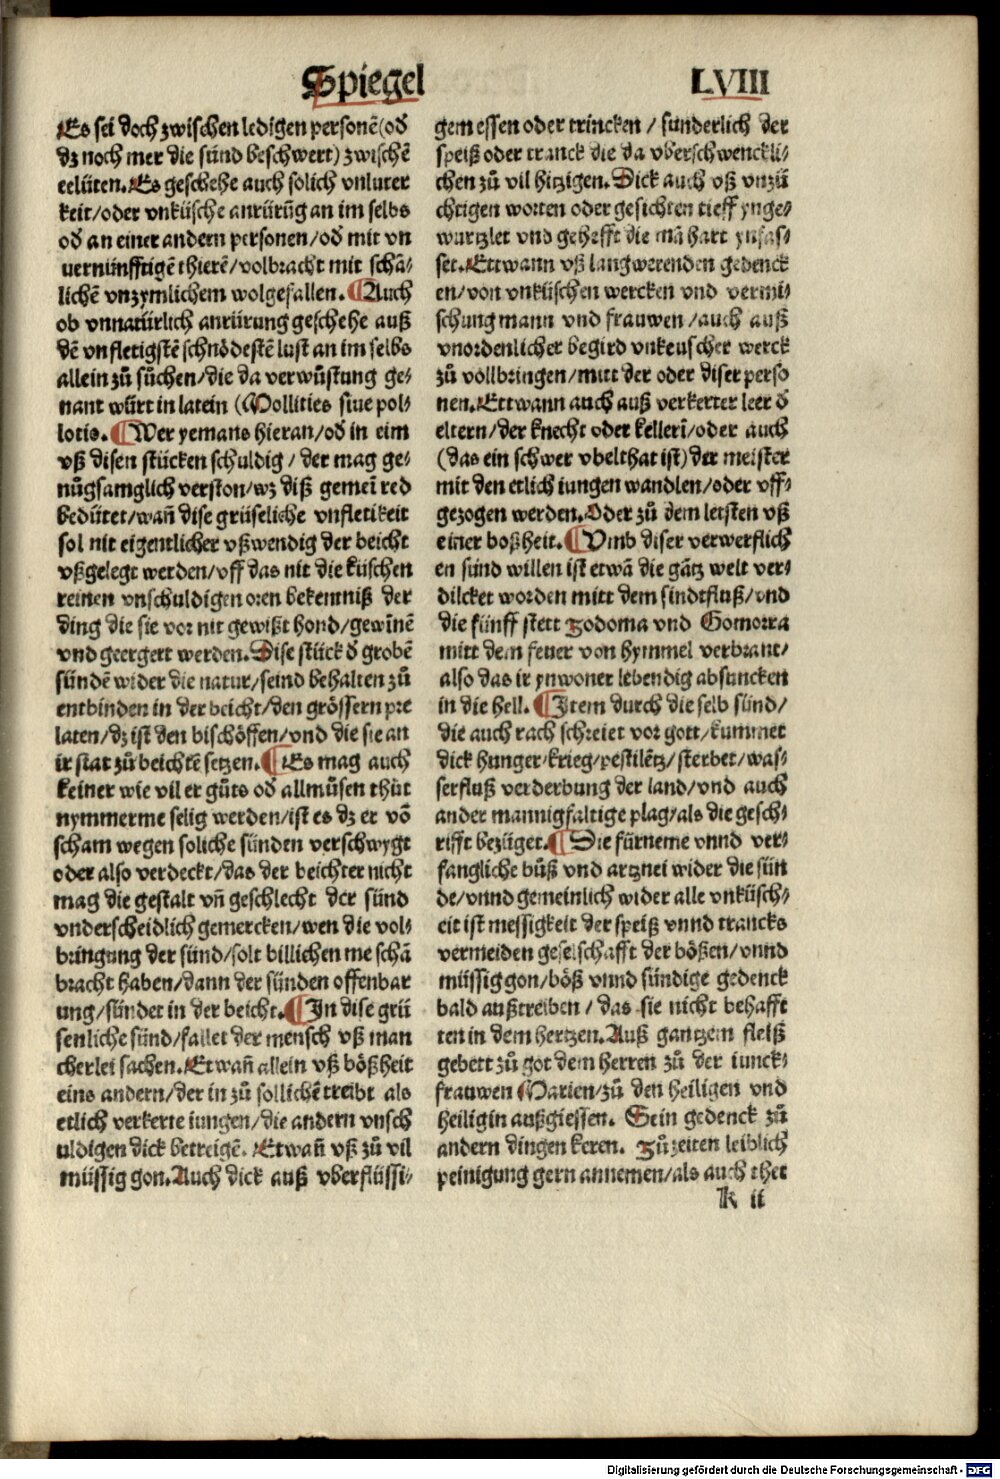 Spiegel
LVIII
Es sei doch zwischen ledigen personē(od
dz noch mer die sünd beschwert) zwischē
eelüten. Es geschehe auch solich vnluter
keit/oder vnküsche anrürūg an im selbs
od an einer andern personen/od mit vn
uernünfftigē thierē/volbracht mit schā-
lichē vnzymlichem wolgefallen. ¶Auch
ob vnnatürlich anrürung geschehe auß
dē vnfletigstē schnödestē lust an im selbs
allein zů sůchen/die da verwůstung ge-
nant würt in latein (Mollities siue pol-
lotis. ¶Wer yemans hieran/od in eim
vß disen stücken schuldig / der mag ge-
nůgsamglich verston/wz diß gemeī red
bedütet/wañ dise grüseliche vnfletikeit
sol nit eigentlicher vßwendig der beicht
vßgelegt werden/vff das nit die küschen
reinen vnschuldigen oren bekentniß der
ding die sie vor nit gewißt hond/gewīnē
vnd geergert werden. Dise stück ð grobē
sündē wider die natur/seind behalten zů
entbinden in der beicht/den grössern pre
laten/dz ist den bischöffen/vnd die sie an
ir stat zů beichtē setzen. ¶Es mag auch
keiner wie vil er gůts od allmůsen thůt
nymmerme selig werden/ist es dz er vō
scham wegen soliche sünden verschwygt
oder also verdeckt/das der beichter nicht
mag die gestalt vñ geschlecht der sünd
vnderscheidlich gemercken/wen die vol-
bringung der sünd/solt billichen me schā
bracht haben/dann der sünden offenbar
ung/sündet in der beicht. ¶In dise grü
senliche sünd/fallet der mensch vß man
cherlei sachen. Etwañ allein vß bößheit
eins andern/der in zů sollichē treibt als
etlich verkerte iungen/die andern vnsch
uldigen dick betreigē. Etwañ vß zů vil
müssig gon. Auch dick auß vberflüssi-
gem essen oder trincken / sunderlich der
speiß oder tranck die da vberschwenckli-
chen zů vil hitzigen. Dick auch vß vnzü
chtigen worten oder gesichten tieff ynge-
wurtzlet vnd gehefft die mā hart ynfas-
set. Ettwann vß langwerenden gedenck
en/von vnküschen wercken vnd vermi-
schung mann vnd frauwen /auch auß
vnordenlicher begird vnkeuscher werck
zů vollbringen/mitt der oder diser perso
nen. Ettwann auch auß verkerter leer ð
eltern/der knecht oder kellerī/oder auch
(das ein schwer vbelthat ist) der meister
mit den etlich iungen wandlen/oder vff-
gezogen werden. Oder zů dem letsten vß
einer boßheit. ¶Vmb diser verwerflich
en sünd willen ist etwā die gātz welt ver-
dilcket worden mitt dem sindtfluß/vnd
die fünff stett zodoma vnd Gomorra
mitt dem feuer von hymmel verbrant/
also das ir ynwoner lebendig absuncken
in die hell. ¶Item durch die selb sünd/
die auch rach schreiet vor gott/kummet
dick hunger/krieg/pestilētz/sterbet/was-
serfluß verderbung der land/vnd auch
ander mannigfaltige plag/als die gesch-
rifft bezüget. ¶Die fürneme vnnd ver-
fangliche bůß vnd artznei wider die sün
de/vnnd gemeinlich wider alle vnküsch-
eit ist messigkeit der speiß vnnd trancks
vermeiden geselschafft der bößen/vnnd
müssig gon/böß vnnd sündige gedenck
bald außtreiben / das sie nicht behafft
ten in dem hertzen. Auß gantzem fleiß
gebett zů got dem herren zů der iunck-
frauwen Marien/zů den heiligen vnd
heiligin außgiessen. Sein gedenck zů
andern dingen keren. Zů zeiten leiblich
peinigung gern annemen/als auch thet
k ii
Digitalisierung gefördert durch die Deutsche Forschungsgemeinschaft - DFG